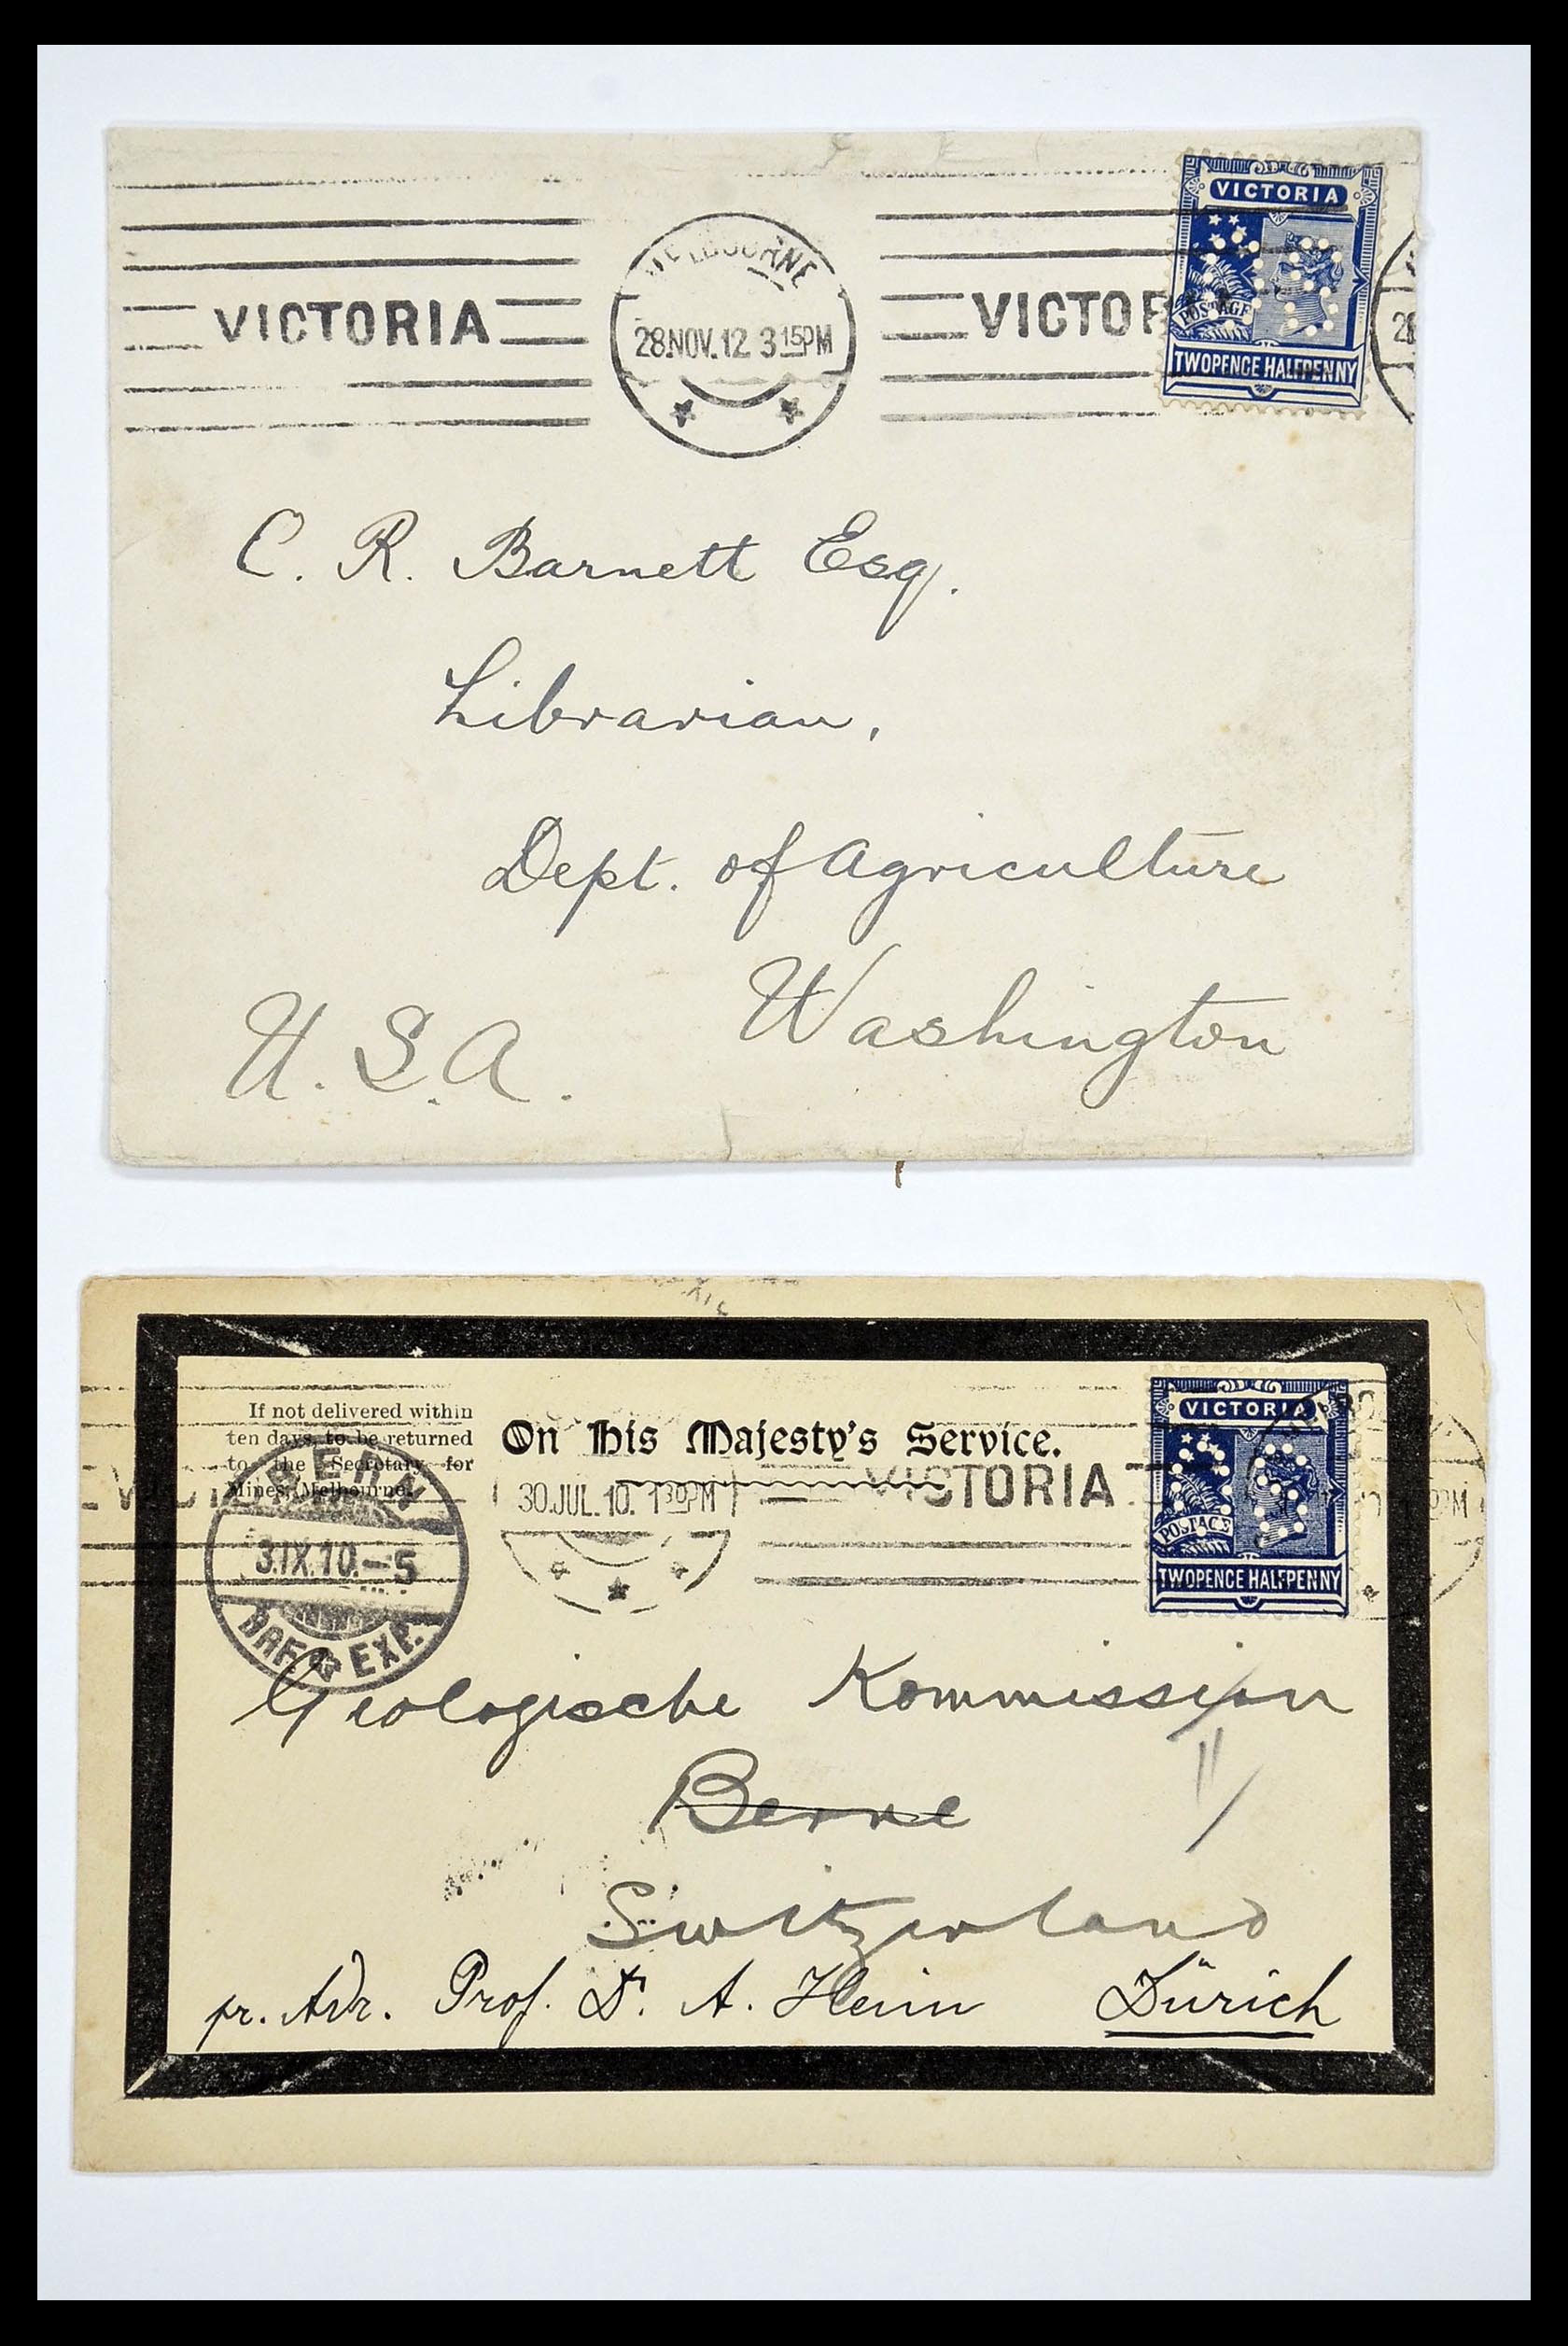 VICTORIA
MELBOURNE
28.NOV.12 3 15PM
VICTOR
VICTORIA
POSTAGE
TWOPENCE HALFPENNY
OS
28
C. R. Barnett Esq.
Librarian,
Dept. of Agriculture
Washington
U.S.A.
If not delivered within
ten days, to be returned
to the Secretary for
Mines, Melbourne.
On His Majesty's Service.
30.JUL.10. 1 30PM
VICTORIA
VICTORIA
POSTAGE
TWOPENCE HALFPENNY
OS
BERN
3.IX.10.–5
BRF. EXP.
Geologische Kommission
Berne
Switzerland
pr. Adr. Prof. Dr. A. Heim Zürich